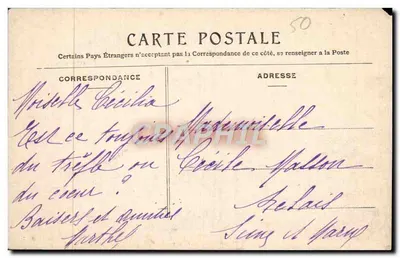 50
CARTE POSTALE
Certains Pays Étrangers n'acceptant pas la Correspondance de ce côté, se renseigner a la Poste
CORRESPONDANCE
Moiselle Cécilia
Est ce toujours
du trèfle ou
du coeur ?
Baisers et amitiés
Marthe
ADRESSE
Mademoiselle
Cécile Masson
Relais
Seine et Marne